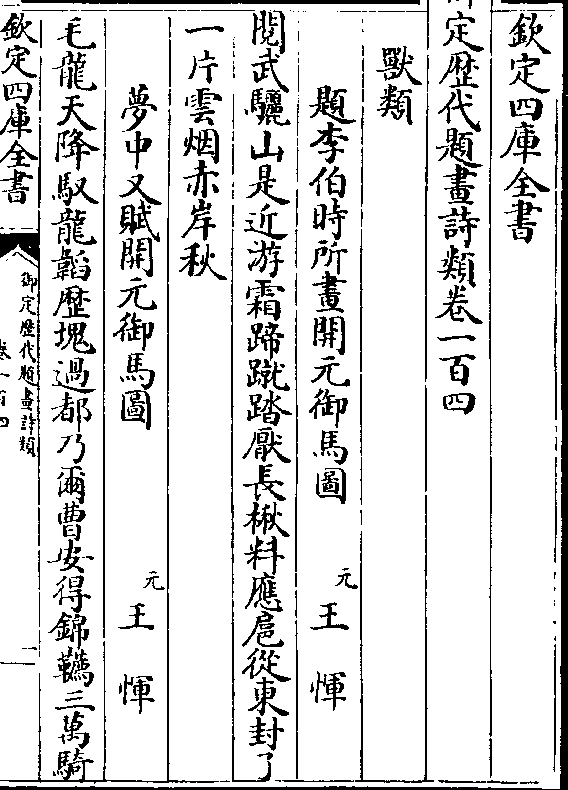 欽定四庫全書
御定歴代題畫詩類卷一百四
獸類
題李伯時所畫開元御馬圖 元 王惲
閱武驪山是近游霜蹄蹴踏厭長楸料應扈從東封了
一片雲烟赤岸秋
夢中又賦開元御馬圖 元 王惲
毛龍天降馭龍韜歴塊過都乃爾曹安得錦韉三萬騎
欽定四庫全書
御定歴代題畫詩類
卷一百四
一